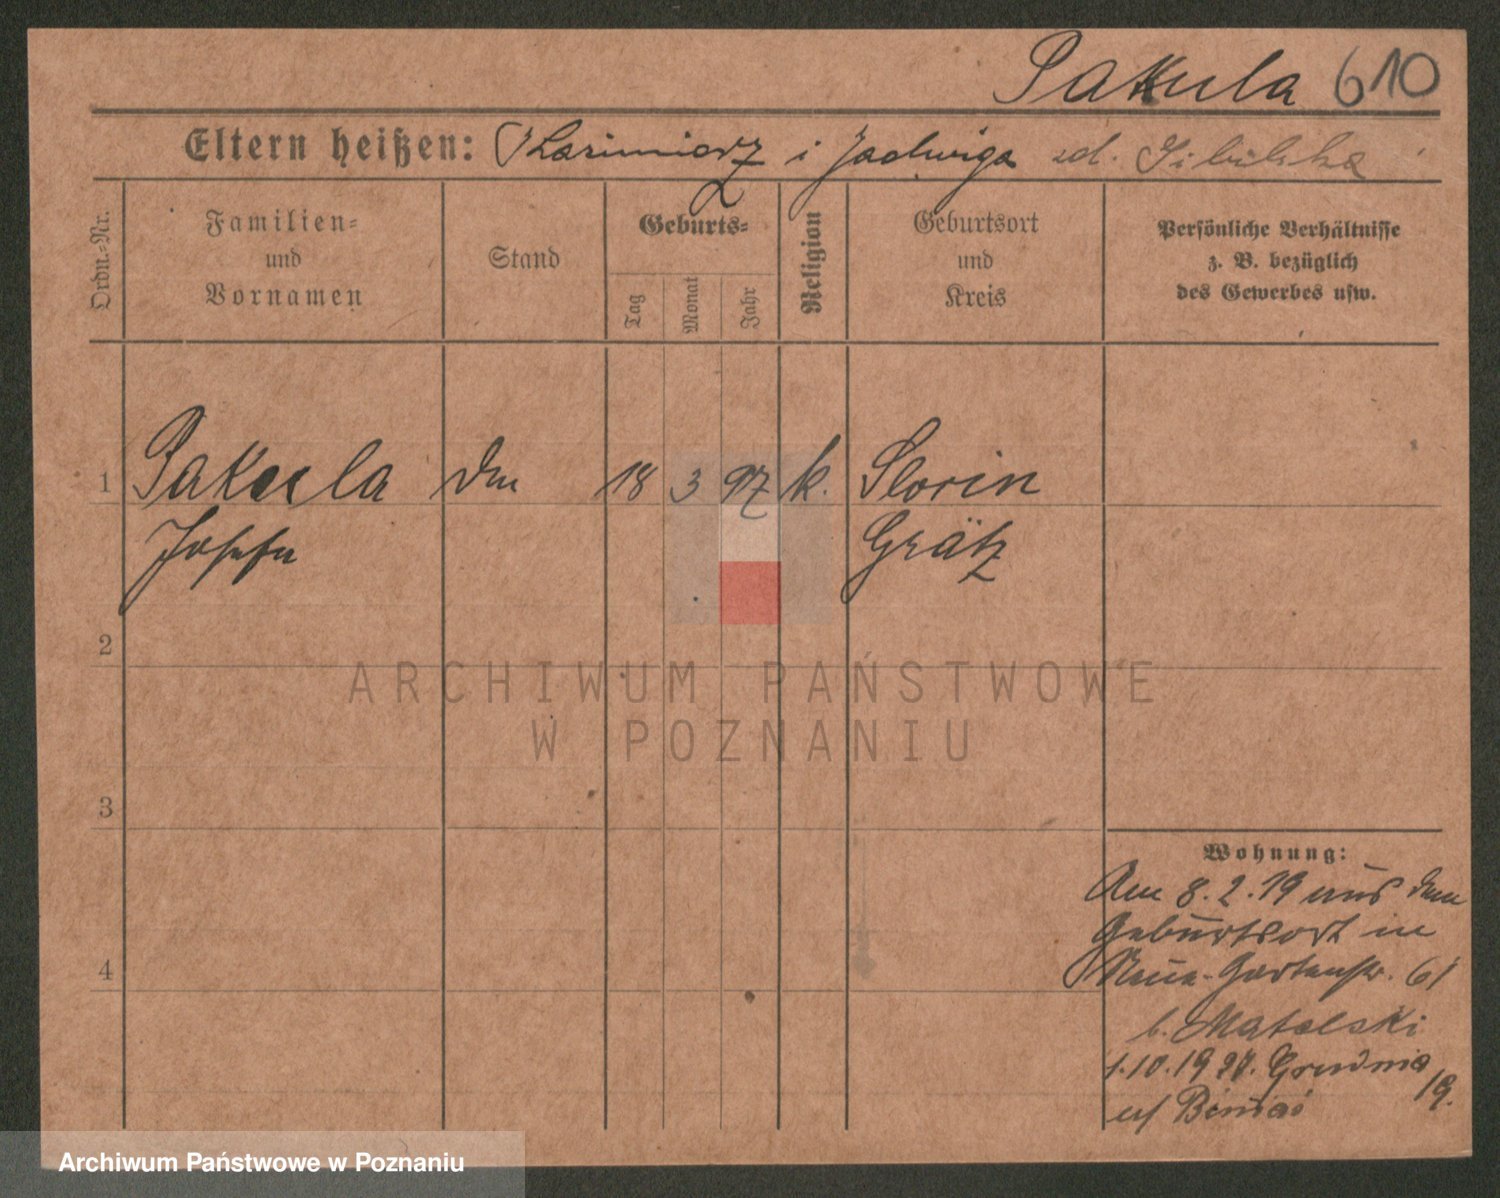 Pakula 610
Eltern heißen: Kazimierz i Jadwiga zd.
Ordn.=Nr.
Familien=
und
Vornamen
Stand
Geburts=
Tag
Monat
Jahr
Religion
Geburtsort
und
Kreis
Persönliche Verhältnisse
z. B. bezüglich
des Gewerbes usw.
1 Pakula 18 3 97 k.
Josefa Grätz
2
3
4
Wohnung:
Am 8.2.19 aus dem
Geburtsort in
Neue-Gartenstr. 61
b. Matelski
1.10.19
19.
ARCHIWUM PAŃSTWOWE
W POZNANIU
Archiwum Państwowe w Poznaniu